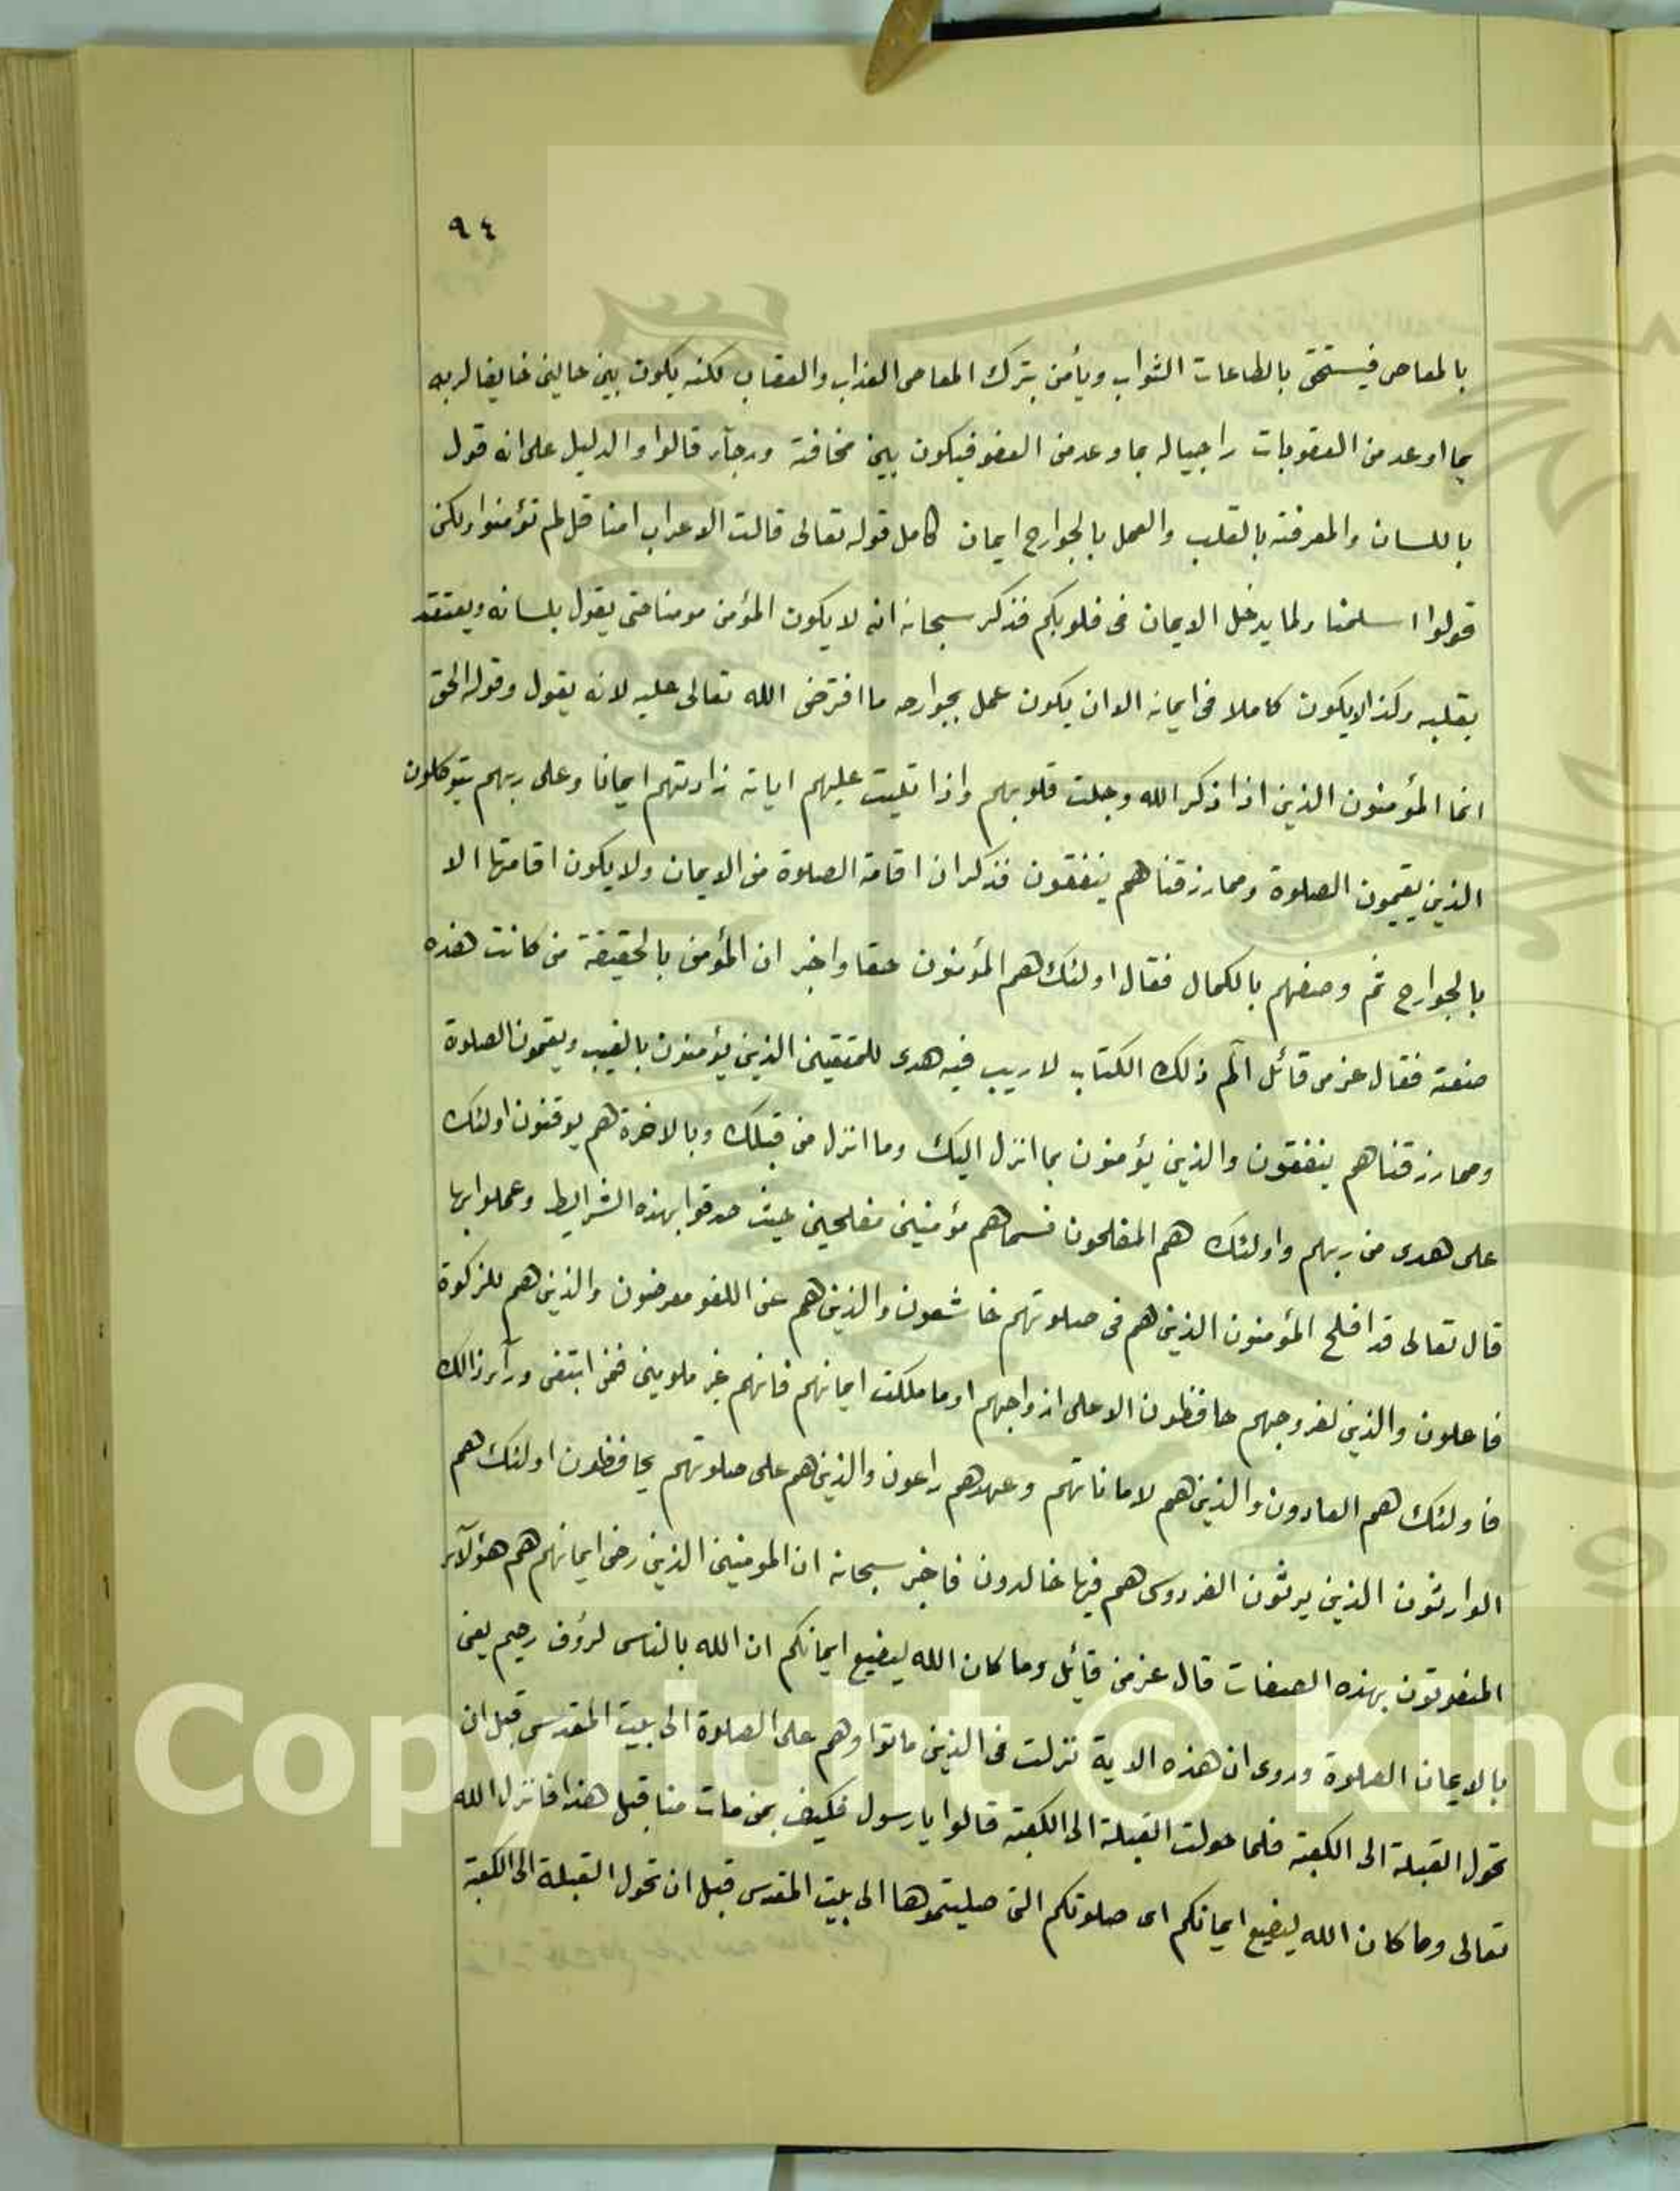 ٩٤
بالمعاصى فيستحق بالطاعات الثواب ويأمن بترك المعاصى العذاب والعقاب لكنه يكون بين حالين خايفا لربه
بما اوعد من العقوبات راجيا له بما وعد من العفو فيكون بين مخافة ورجآء قالوا والدليل على انه قول
باللسان والمعرفة بالقلب والعمل بالجوارح ايمان كامل قوله تعالى قالت الاعراب امنا قل لم تؤمنوا ولكن
قولوا اسلمنا ولما يدخل الايمان فى قلوبكم فذكر سبحانه انه لا يكون المؤمن مومنا حتى يقول بلسانه ويعتقد
بقلبه وكذا لايكون كاملا فى ايمانه الا ان يكون عمل بجوارحه ما افترض الله تعالى عليه لانه يقول وقوله الحق
انما المؤمنون الذين اذا ذكر الله وجلت قلوبهم واذا تليت عليهم اياته زادتهم ايمانا وعلى ربهم يتوكلون
الذين يقيمون الصلوة ومما رزقناهم ينفقون فذكر ان اقامة الصلوة من الايمان ولا يكون اقامتها الا
بالجوارح ثم وصفهم بالكمال فقال اولئك هم المؤمنون حقا واخبر ان المؤمن بالحقيقة من كانت هذه
صفته فقال عز من قائل الٓم ذلك الكتاب لا ريب فيه هدى للمتقين الذين يؤمنون بالغيب ويقيمون الصلوة
ومما رزقناهم ينفقون والذين يؤمنون بما انزل اليك وما انزل من قبلك وبالاخرة هم يوقنون اولئك
على هدى من ربهم واولئك هم المفلحون فسماهم مؤمنين مفلحين حيث صدقوا بهذه الشرايط وعملوا بها
قال تعالى قد افلح المؤمنون الذين هم فى صلوتهم خاشعون والذين هم عن اللغو معرضون والذين هم للزكوة
فاعلون والذين لفروجهم حافظون الا على ازواجهم او ما ملكت ايمانهم فانهم غير ملومين فمن ابتغى ورآء ذالك
فاولئك هم العادون والذين هم لاماناتهم وعهدهم راعون والذين هم على صلوتهم يحافظون اولئك هم
الوارثون الذين يرثون الفردوس هم فيها خالدون فاخبر سبحانه ان المومنين الذين رضى ايمانهم هم هؤلآء
المنعوتون بهذه الصفات قال عز من قايل وما كان الله ليضيع ايمانكم ان الله بالناس لرؤف رحيم يعنى
بالايمان الصلوة وروى ان هذه الاية نزلت فى الذين ماتوا وهم على الصلوة الى بيت المقدس قبل ان
تحول القبلة الى الكعبة فلما حولت القبلة الى الكعبة قالوا يا رسول فكيف بمن مات منا قبل هذا فانزل الله
تعالى وما كان الله ليضيع ايمانكم اى صلوتكم التى صليتموها الى بيت المقدس قبل ان تحول القبلة الى الكعبة
Copyright © King